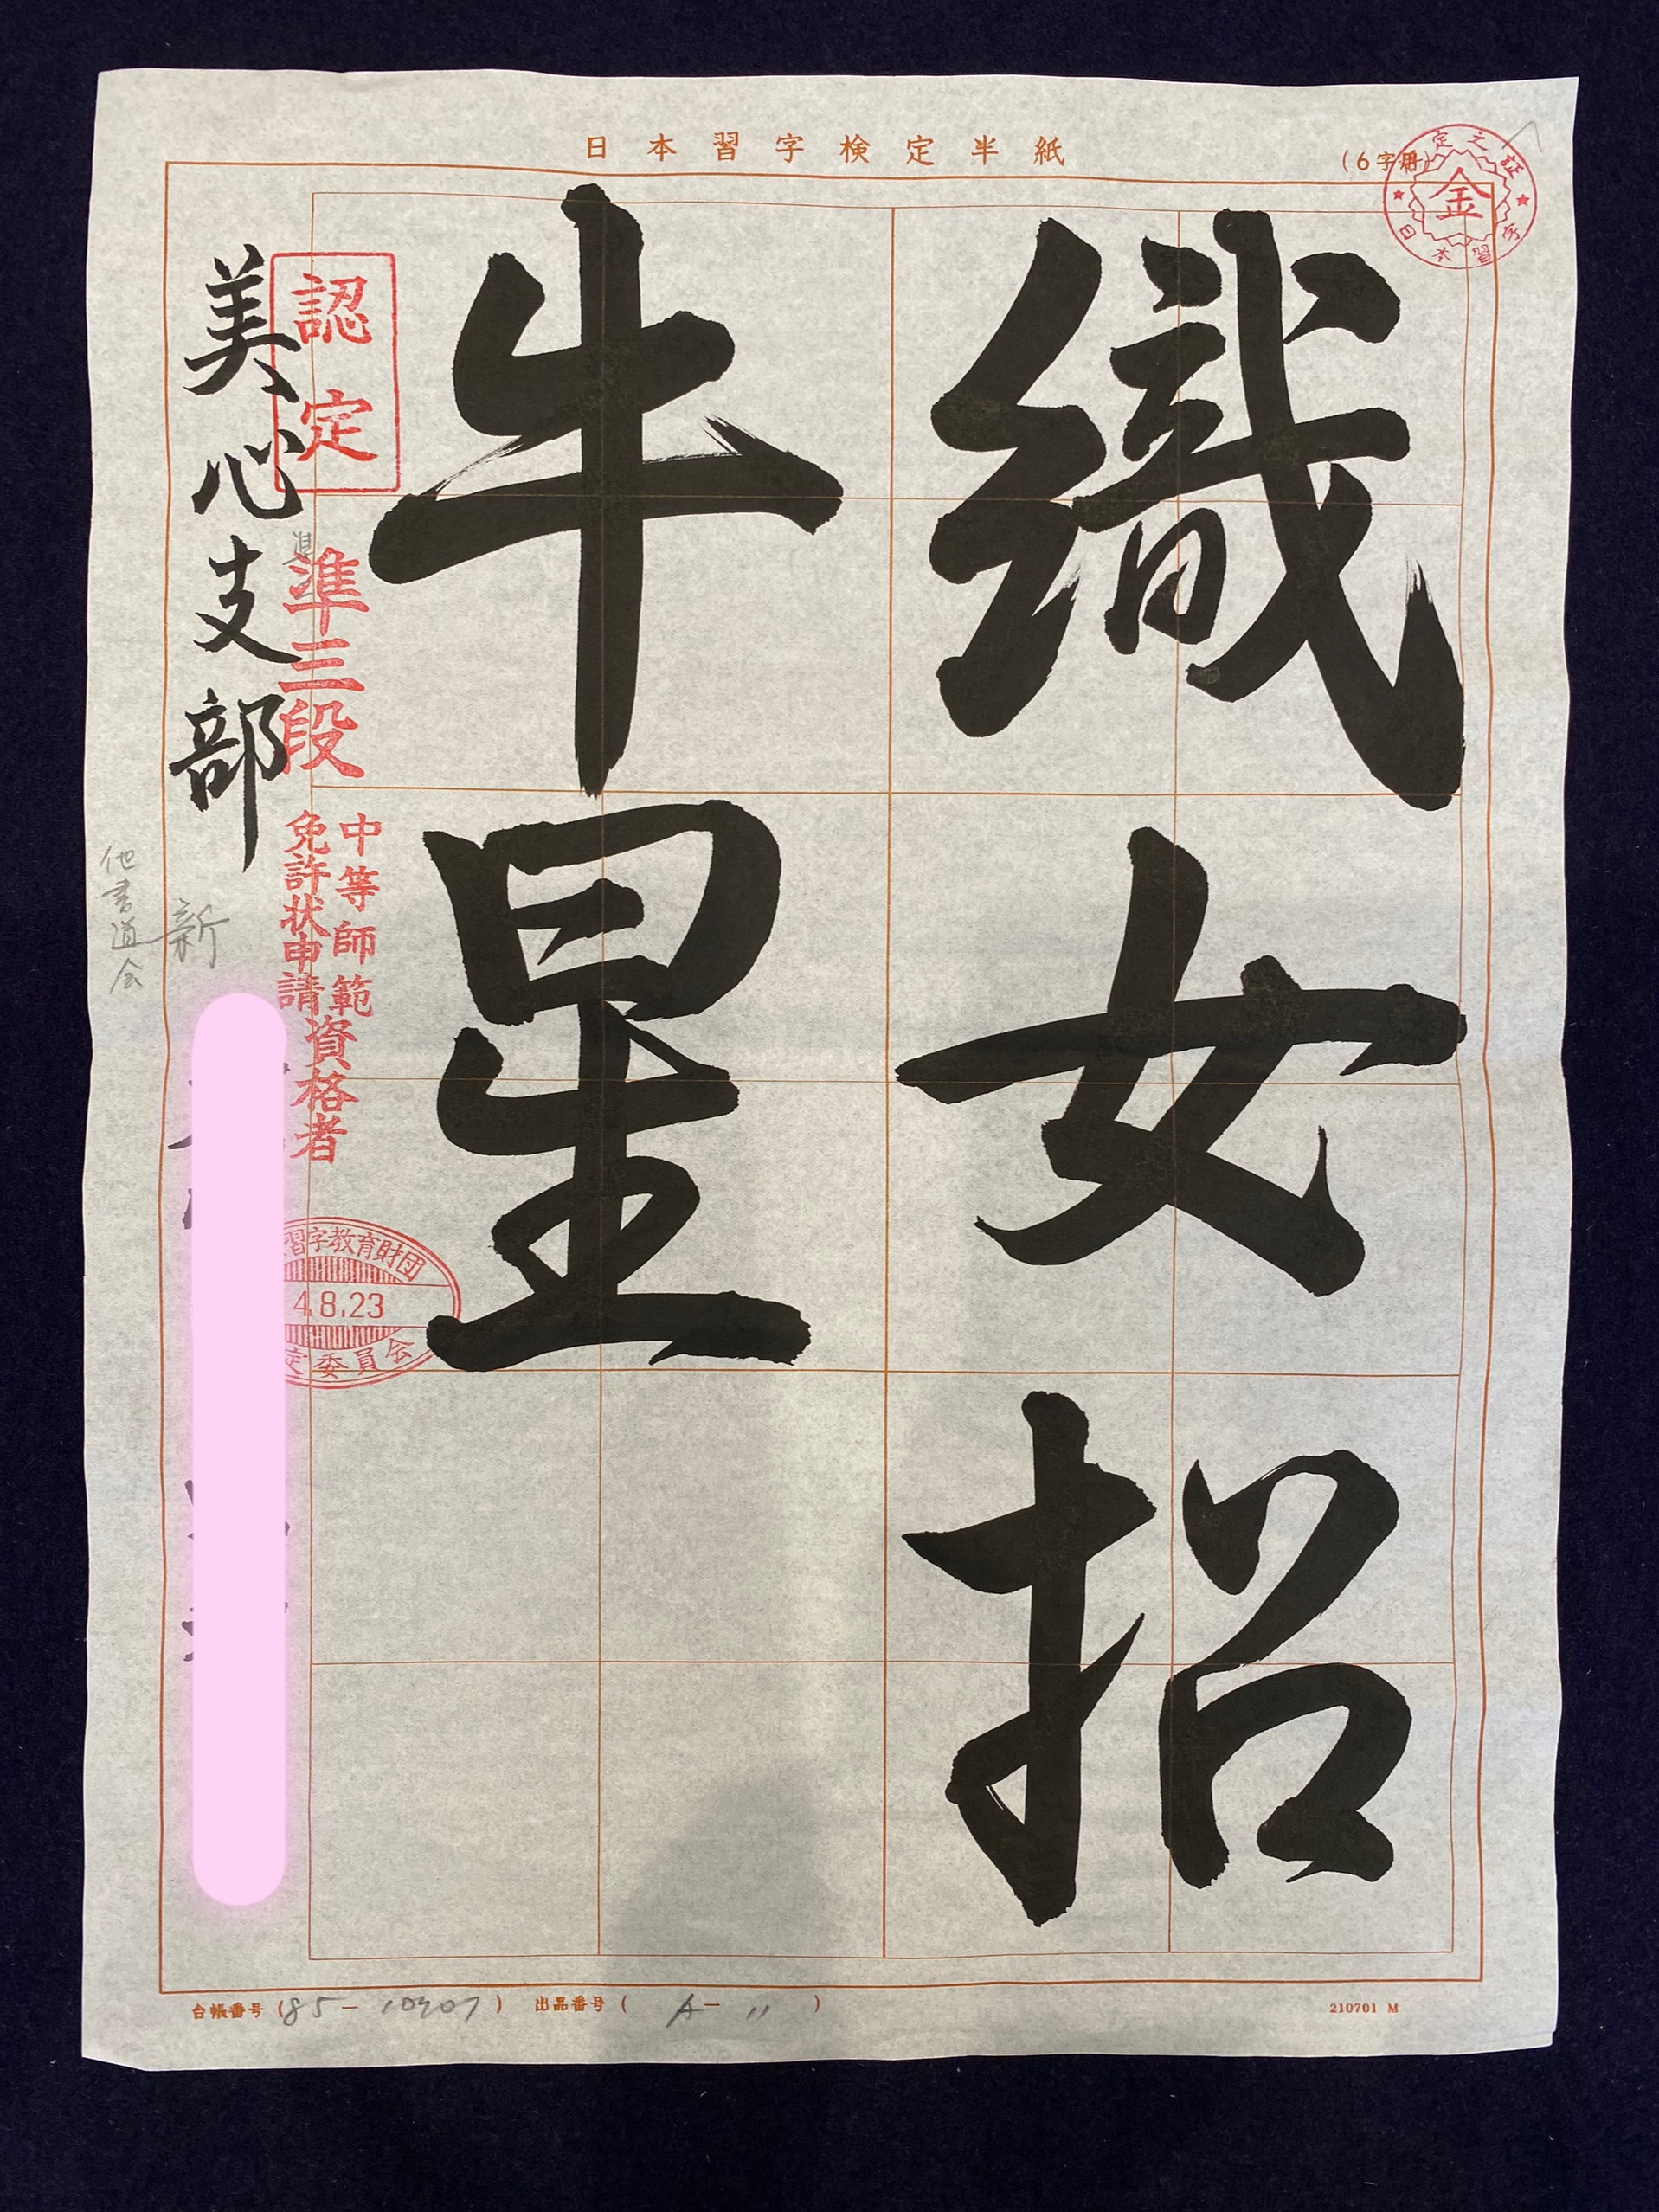 日本習字検定半紙
(6字用)
定之証
金
日本習字
織女招
牛星
認定
準三段
中等師範
免許状申請
資格者
習字教育財団
4.8.23
定委員会
美心支部
新
他書道会
台帳番号(85-
出品番号(A-11)
210701 M